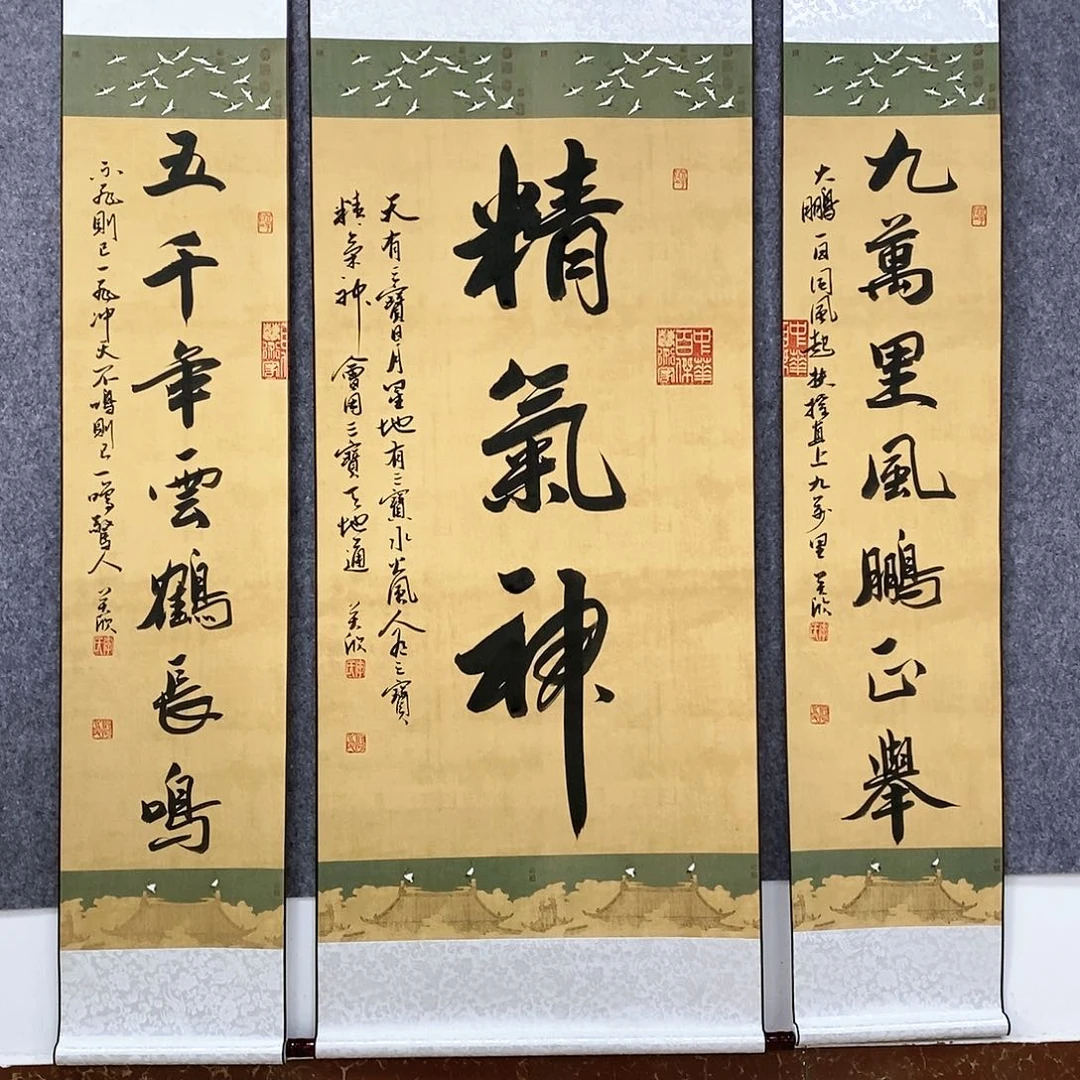 九萬里風鵬正舉
大鵬一日同風起扶搖直上九萬里 美欣
精氣神
中華
百傑
天有三寶日月星地有三寶水火風人有三寶
精氣神會用三寶天地通 美欣
五千年雲鶴長鳴
不飛則已一飛冲天不鳴則已一鳴驚人 美欣